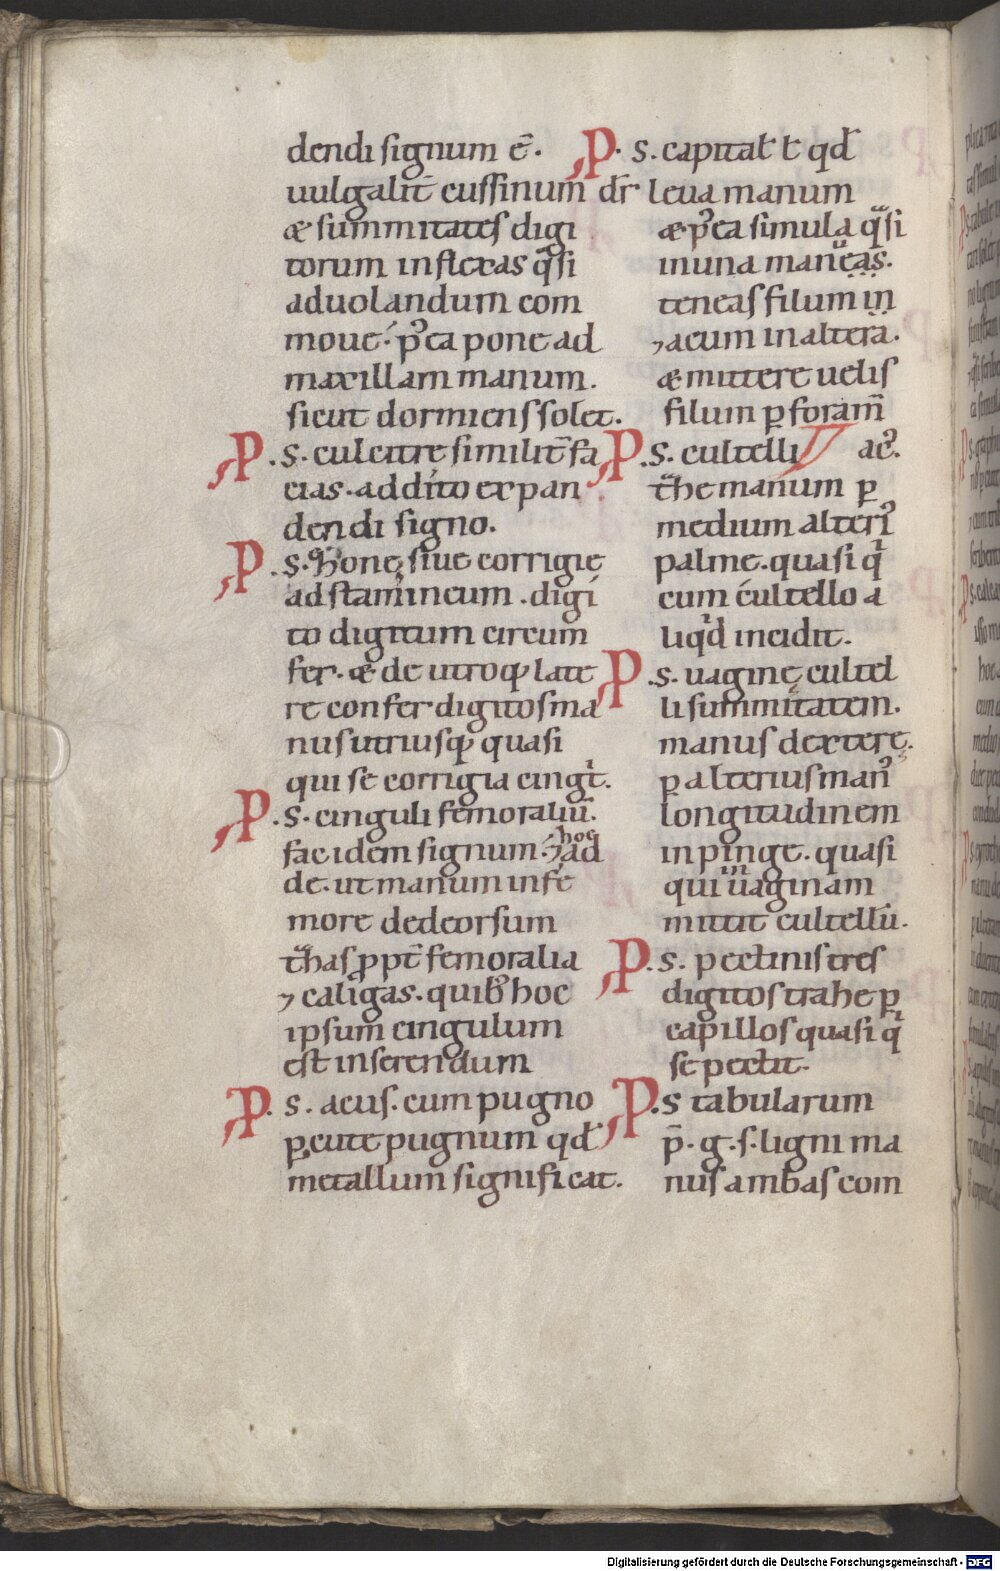 dendi signum ē. P. S. capitał ł qđ
uulgalit̄ cussinum dr̄ leua manum
& summitates digi
torum inflexas qͣsi
aduolandum com
moue. p᷒ea pone ad
maxillam manum.
sicut dormiens solet.
P. S. culcitre similit̄ fa
cias. addito expan
dendi signo.
P. S. Zone siue corrigię
ad stamineum. digi
to digitum circum
fer. & de utroq; late
re confer digitos ma
nus utriusq; quasi
qui se corrigia cingit.
P. S. cinguli femoraliū.
fac idem signum. ⁊ hoc ad
de. ut manum infe
more dedeorsum
tͣhas ꝓpt̄ femoralia
⁊ caligas. quib᷒ hoc
ipsum cingulum
est inserendum
P. S. acus. cum pugno
ꝑcute pugnum qđ
metallum significat.
& p᷒ea simula qͣsi
inuna manu teneas.
teneas filum in
⁊ acum inaltera.
& mittere uelis
filum ꝑ foram̄
P. S. cultelli ac᷒.
tͣhe manum ꝑ
medium alteri᷒
palme. quasi qͥ
cum cultello a
liqͥd incidit.
P. S. uaginę cultel
li summitatem.
manus dexterę
ꝑ alterius man᷒
longitudinem
inpinge. quasi
qui in uaginam
mittit cultellū.
P. S. pectinis tres
digitos trahe ꝑ
capillos quasi qͥ
se pectit.
P. S tabularum
p̄. g. s. ligni ma
nus ambas com
Digitalisierung gefördert durch die Deutsche Forschungsgemeinschaft - DFG